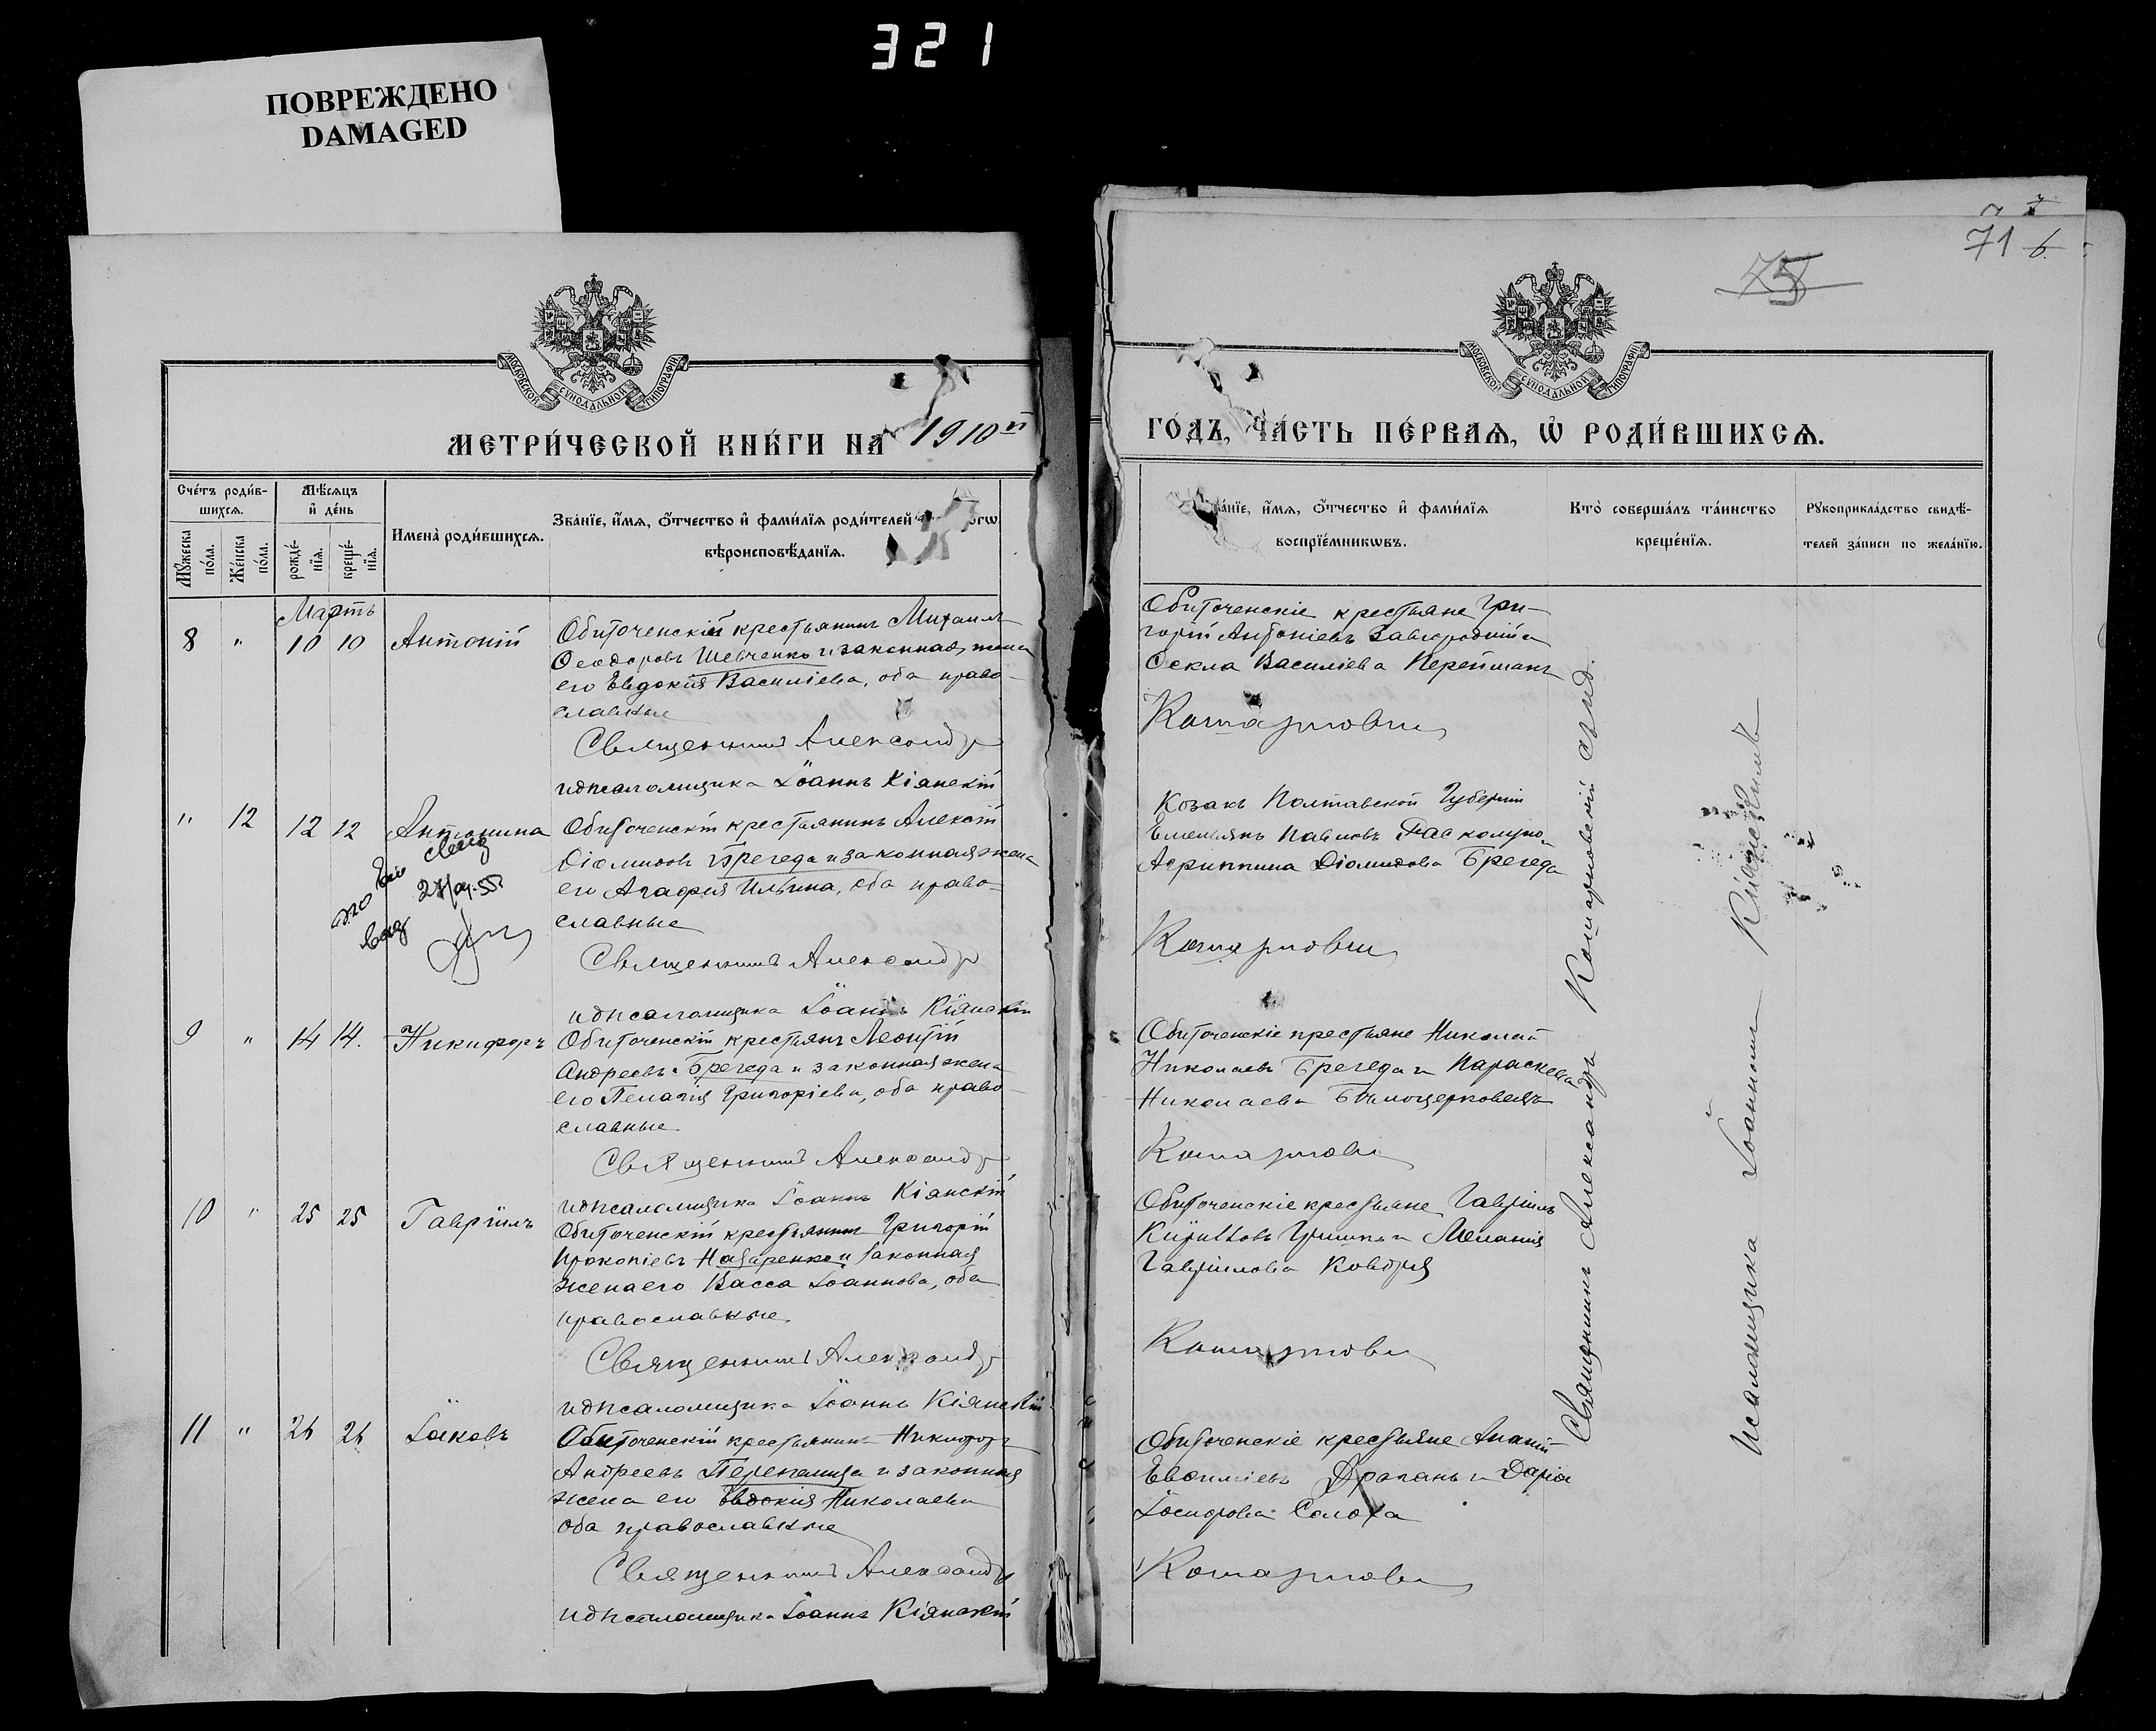 321
ПОВРЕЖДЕНО
DAMAGED
71 6.
75
МОСКОВСКОЙ СѴНОДАЛЬНОЙ ТИПОГРАФІИ
МОСКОВСКОЙ СѴНОДАЛЬНОЙ ТИПОГРАФІИ
МЕТРИ́ЧЕСКОЙ КНИ́ГИ НА 1910й
ГО́ДЪ, ЧА́СТЬ ПЕ́РВАѦ, Ѿ РОДИ́ВШИХСѦ.
Сче́тъ роди́в-
шихсѧ.
Мꙋ́жеска
по́ла.
Же́нска
по́ла.
Мѣ́сѧцъ
и҆ де́нь
рожде́-
нїѧ.
креще́-
нїѧ.
И҆мена̀ роди́вшихсѧ.
Зва́нїе, и҆́мѧ, ѻ҆́тчество и҆ фами́лїѧ роди́телей
вѣроисповѣ́данїѧ.
и҆́мѧ, ѻ҆́тчество и҆ фами́лїѧ
воспрїе́мникѡвъ.
Кто̀ соверша́лъ та́инство
креще́нїѧ.
Рꙋкоприкла́дство свидѣ́-
телей за́писи по жела́нїю.
Мартъ
8 " 10 10 Антоній
Обиточенскій крестьянинъ Михаилъ
Ѳеодоровъ Шевченко и законная жена
его Евдокія Василіева, оба право-
славные
Священникъ Александръ
и д псаломщика Іоаннъ Кіянскій
Обиточенскіе крестьяне Гри-
горій Антоніевъ Завгородній и
Ѳекла Василіева
Кошарновскій
" 12 12 12 Антонина
Обиточенскій крестьянинъ Алексій
Діомидовъ Брегеда и законная жена
его Агафія Ильина, оба право-
славные
Священникъ Александръ
и д псаломщика Іоаннъ Кіянскій
Козакъ Полтавской Губерніи
Емельянъ Павловъ
Агриппина Діомидова Брегеда
Кошарновскій
9 " 14 14. Никифоръ
Обиточенскій крестьянъ Леонтій
Андреевъ Брегеда и законная жена
его Пелагія Григоріева, оба право-
славные
Священникъ Александръ
и д псаломщика Іоаннъ Кіянскій
Обиточенскіе крестьяне Николай
Николаевъ Брегеда и Параскева
Николаева Бѣлоцерковецъ
Кошарновскій
10 " 25 25 Гавріилъ
Обиточенскій крестьянинъ Григорій
Прокопіевъ Назаренко и законная
жена его Васса Іоаннова, оба
православные
Священникъ Александръ
и д псаломщика Іоаннъ Кіянскій
Обиточенскіе крестьяне Гавріилъ
Кирилловъ Гришко и Меланія
Гавріилова
Кошарновскій
11 " 26 26 Іаковъ
Обиточенскій крестьянинъ Никифоръ
Андреевъ Перепелица и законная
жена его Евдокія Николаева
оба православные
Священникъ Александръ
и д псаломщика Іоаннъ Кіянскій
Обиточенскіе крестьяне Ананій
Евѳиміевъ Драганъ и Дарія
Іосифова Солоха
Кошарновскій
Священникъ Александръ Кошарновскій
Псаломщика Іоаннъ Кіянскій